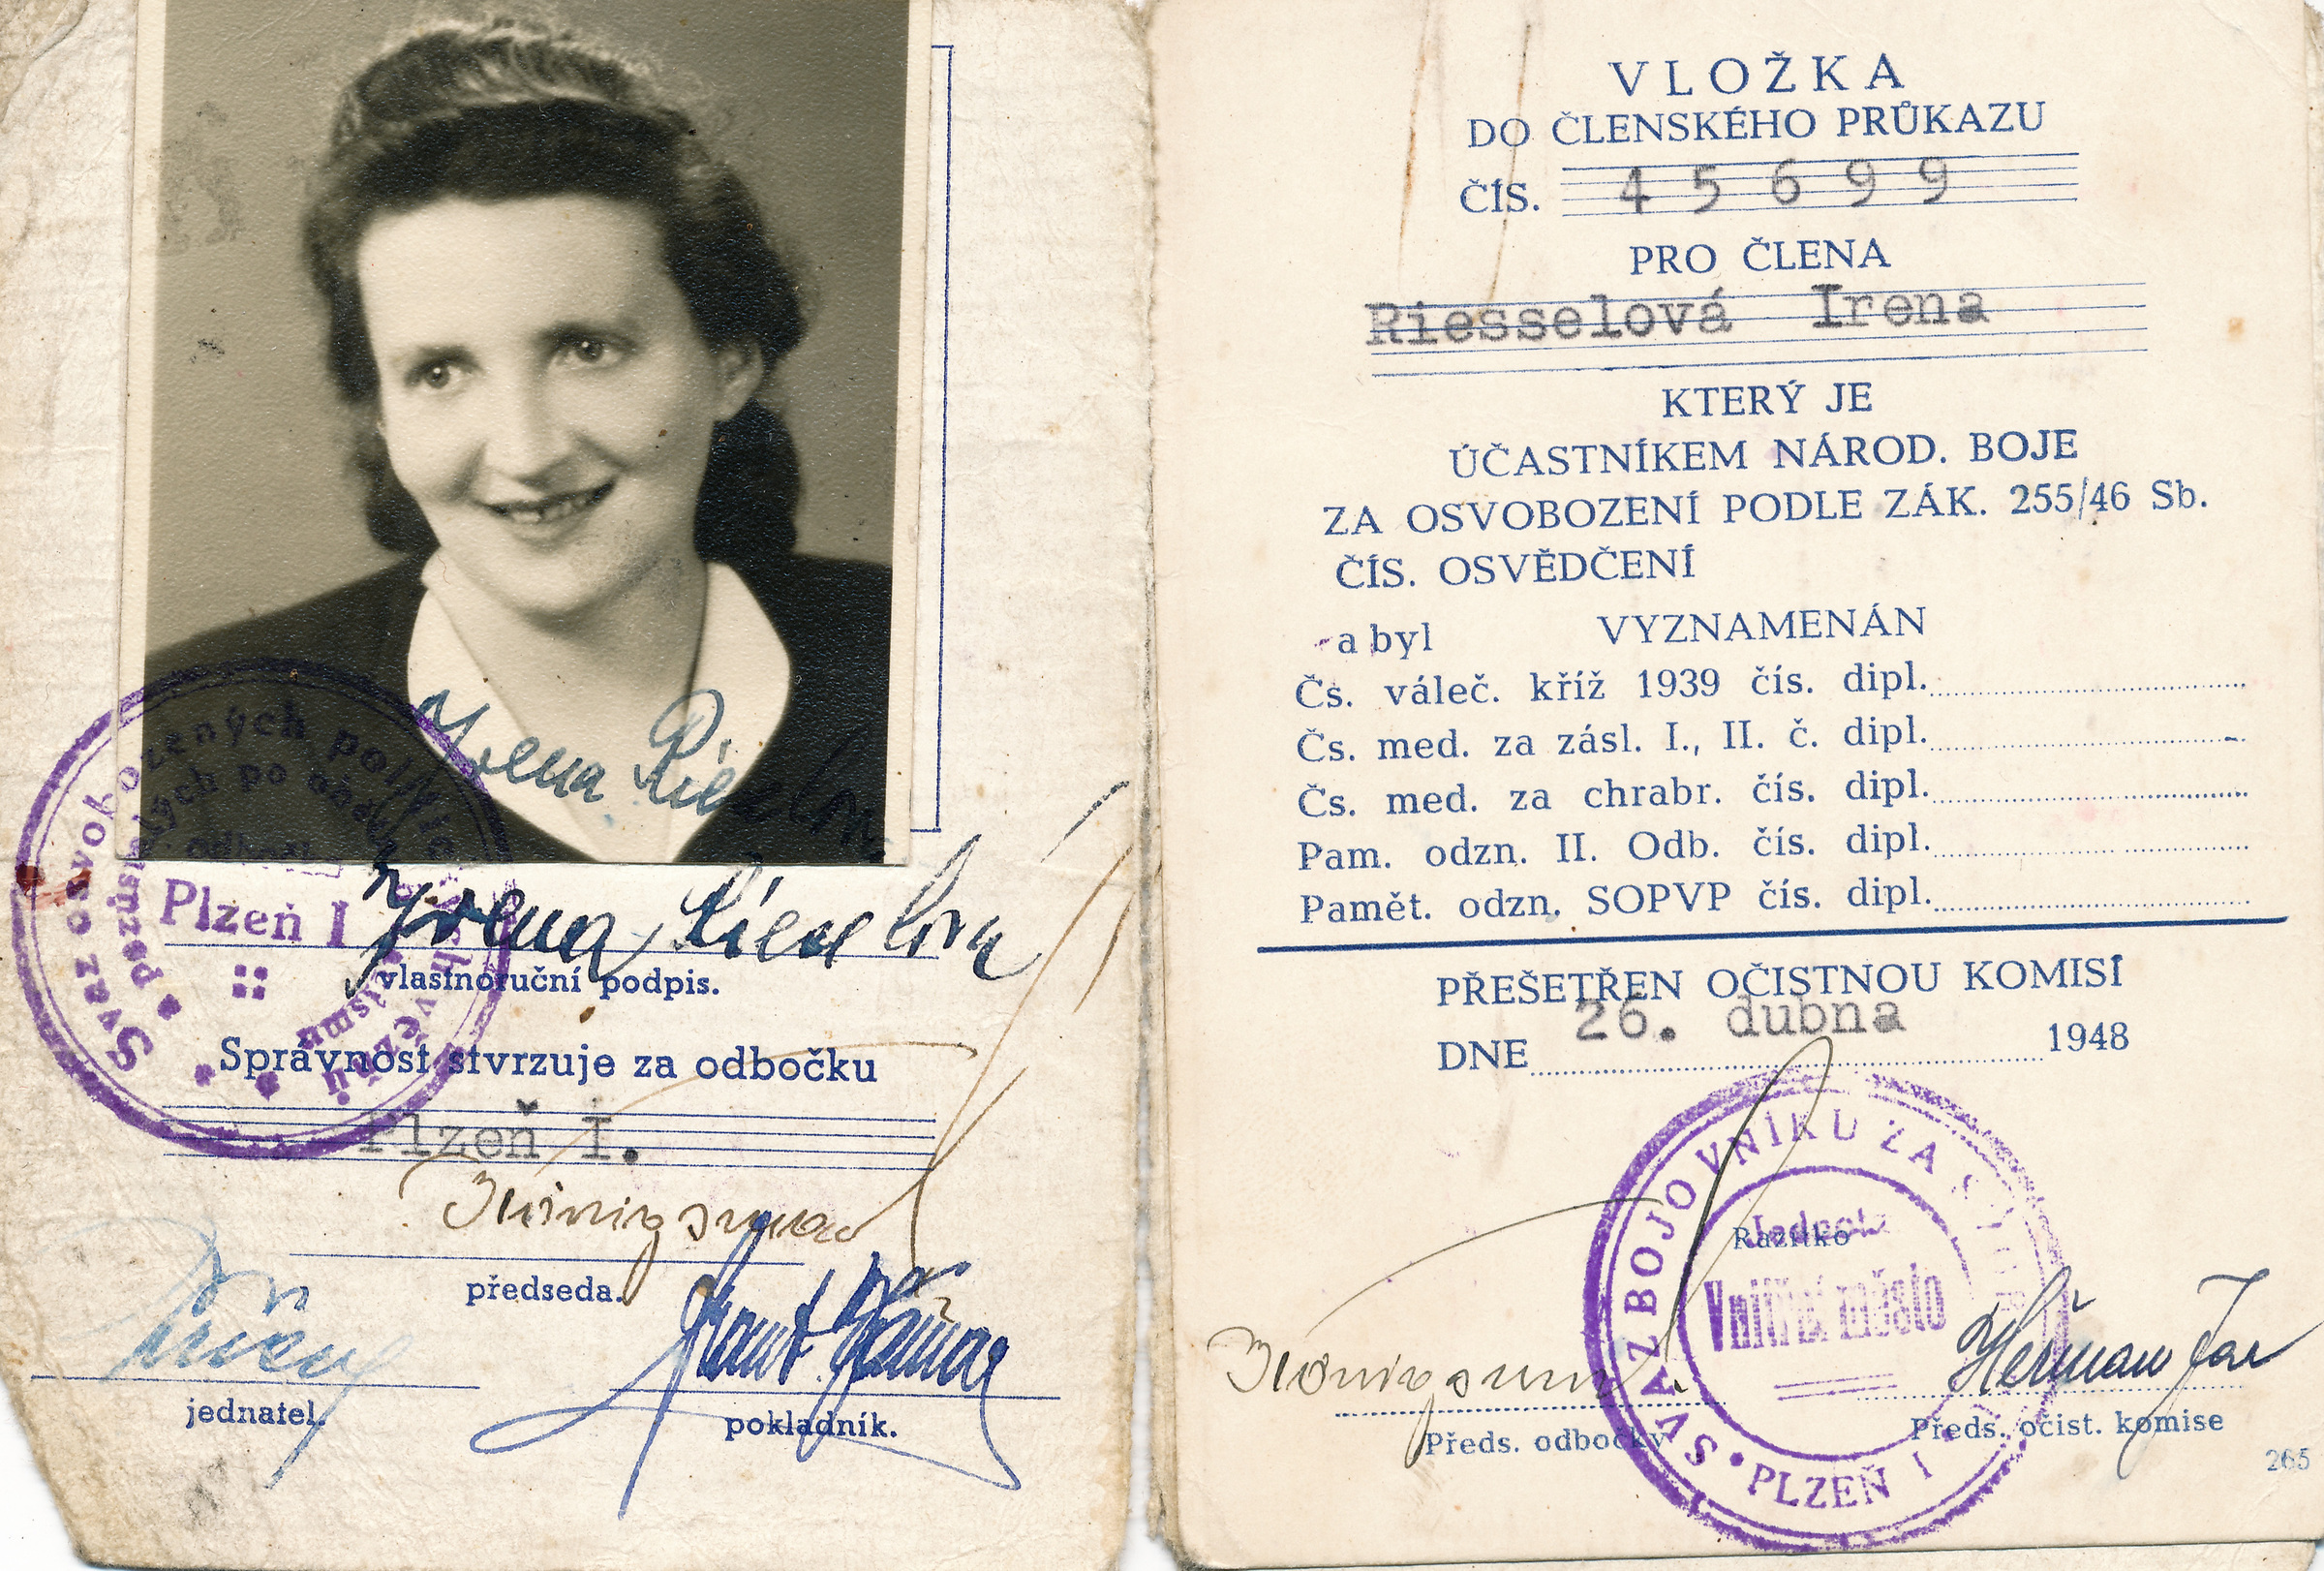 Irena
Plzeň I
Irena
vlastnoruční podpis.
Správnost stvrzuje za odbočku
Plzeň I.
předseda.
jednatel.
pokladník.
Svaz osvobozených politických vězňů
VLOŽKA
DO ČLENSKÉHO PRŮKAZU
ČÍS. 45699
PRO ČLENA
Riesselová Irena
KTERÝ JE
ÚČASTNÍKEM NÁROD. BOJE
ZA OSVOBOZENÍ PODLE ZÁK. 255/46 Sb.
ČÍS. OSVĚDČENÍ
a byl VYZNAMENÁN
Čs. váleč. kříž 1939 čís. dipl.
Čs. med. za zásl. I., II. č. dipl.
Čs. med. za chrabr. čís. dipl.
Pam. odzn. II. Odb. čís. dipl.
Pamět. odzn. SOPVP čís. dipl.
PŘEŠETŘEN OČISTNOU KOMISÍ
DNE 26. dubna 1948
SVAZ BOJOVNÍKU ZA
Jednota
Razítko
Vnitřní město
PLZEŇ I
Heřman
Předs. odbočky
Předs. očist. komise
265